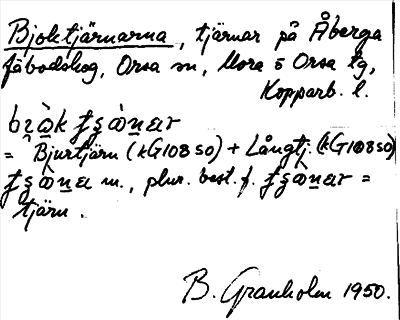 Bjoktjärnarna, tjärnar på Åberga
fäbodskog, Orsa sn, Mora o Orsa tg,
Kopparb. l.
= Bjurtjärn (kG10850) + Långtj. (kG10850)
m., plur. best. f. =
tjärn.
B. Granholm 1950.